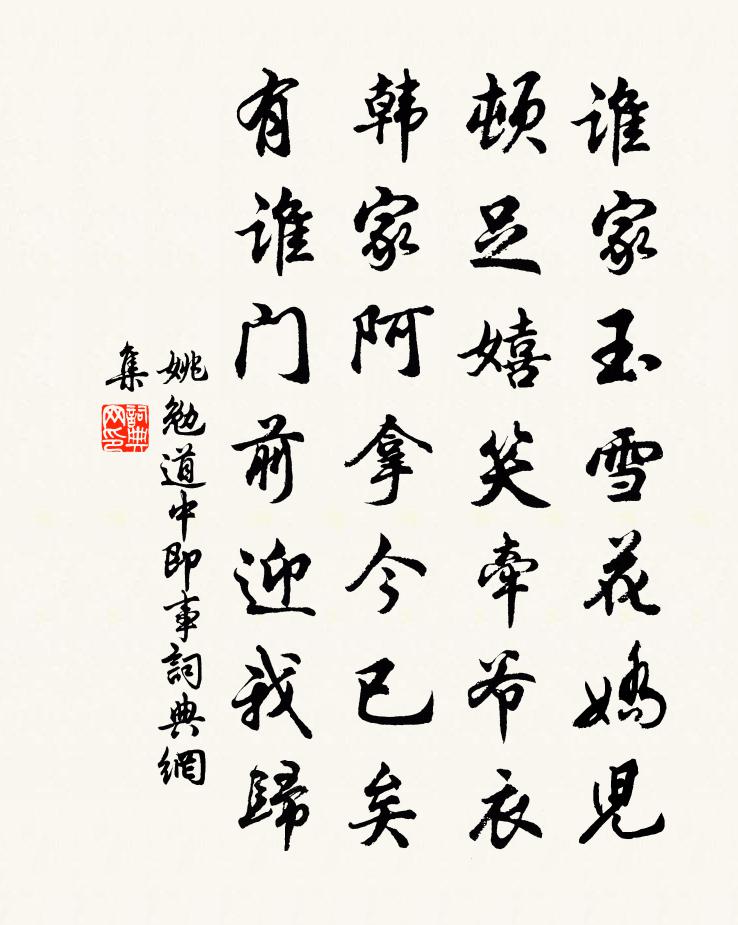 谁家玉雪花娇児
顿足嬉笑牵爷衣
韩家阿拿今已矣
有谁门前迎我歸
姚勉道中即事詞典網
集
詞典网印